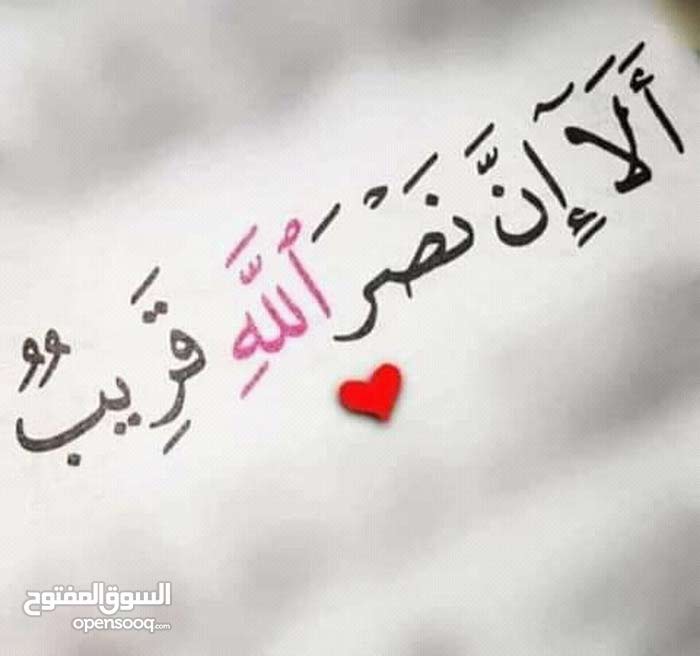 أَلَآ إِنَّ نَصْرَ ٱللَّهِ قَرِيبٌ
السوق المفتوح
opensooq.com